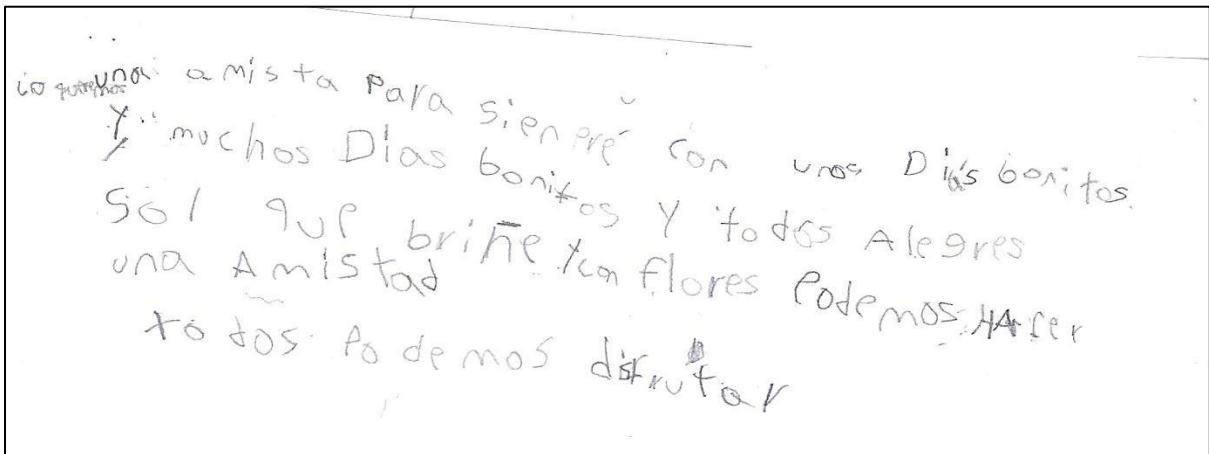 io queremos una amista Para sienpre con unos Dias bonitos.
Y muchos Dias bonitos Y todos Alegres
Sol que briñe Y con flores Podemos HAcer
una Amistad
todos Podemos disfrutar